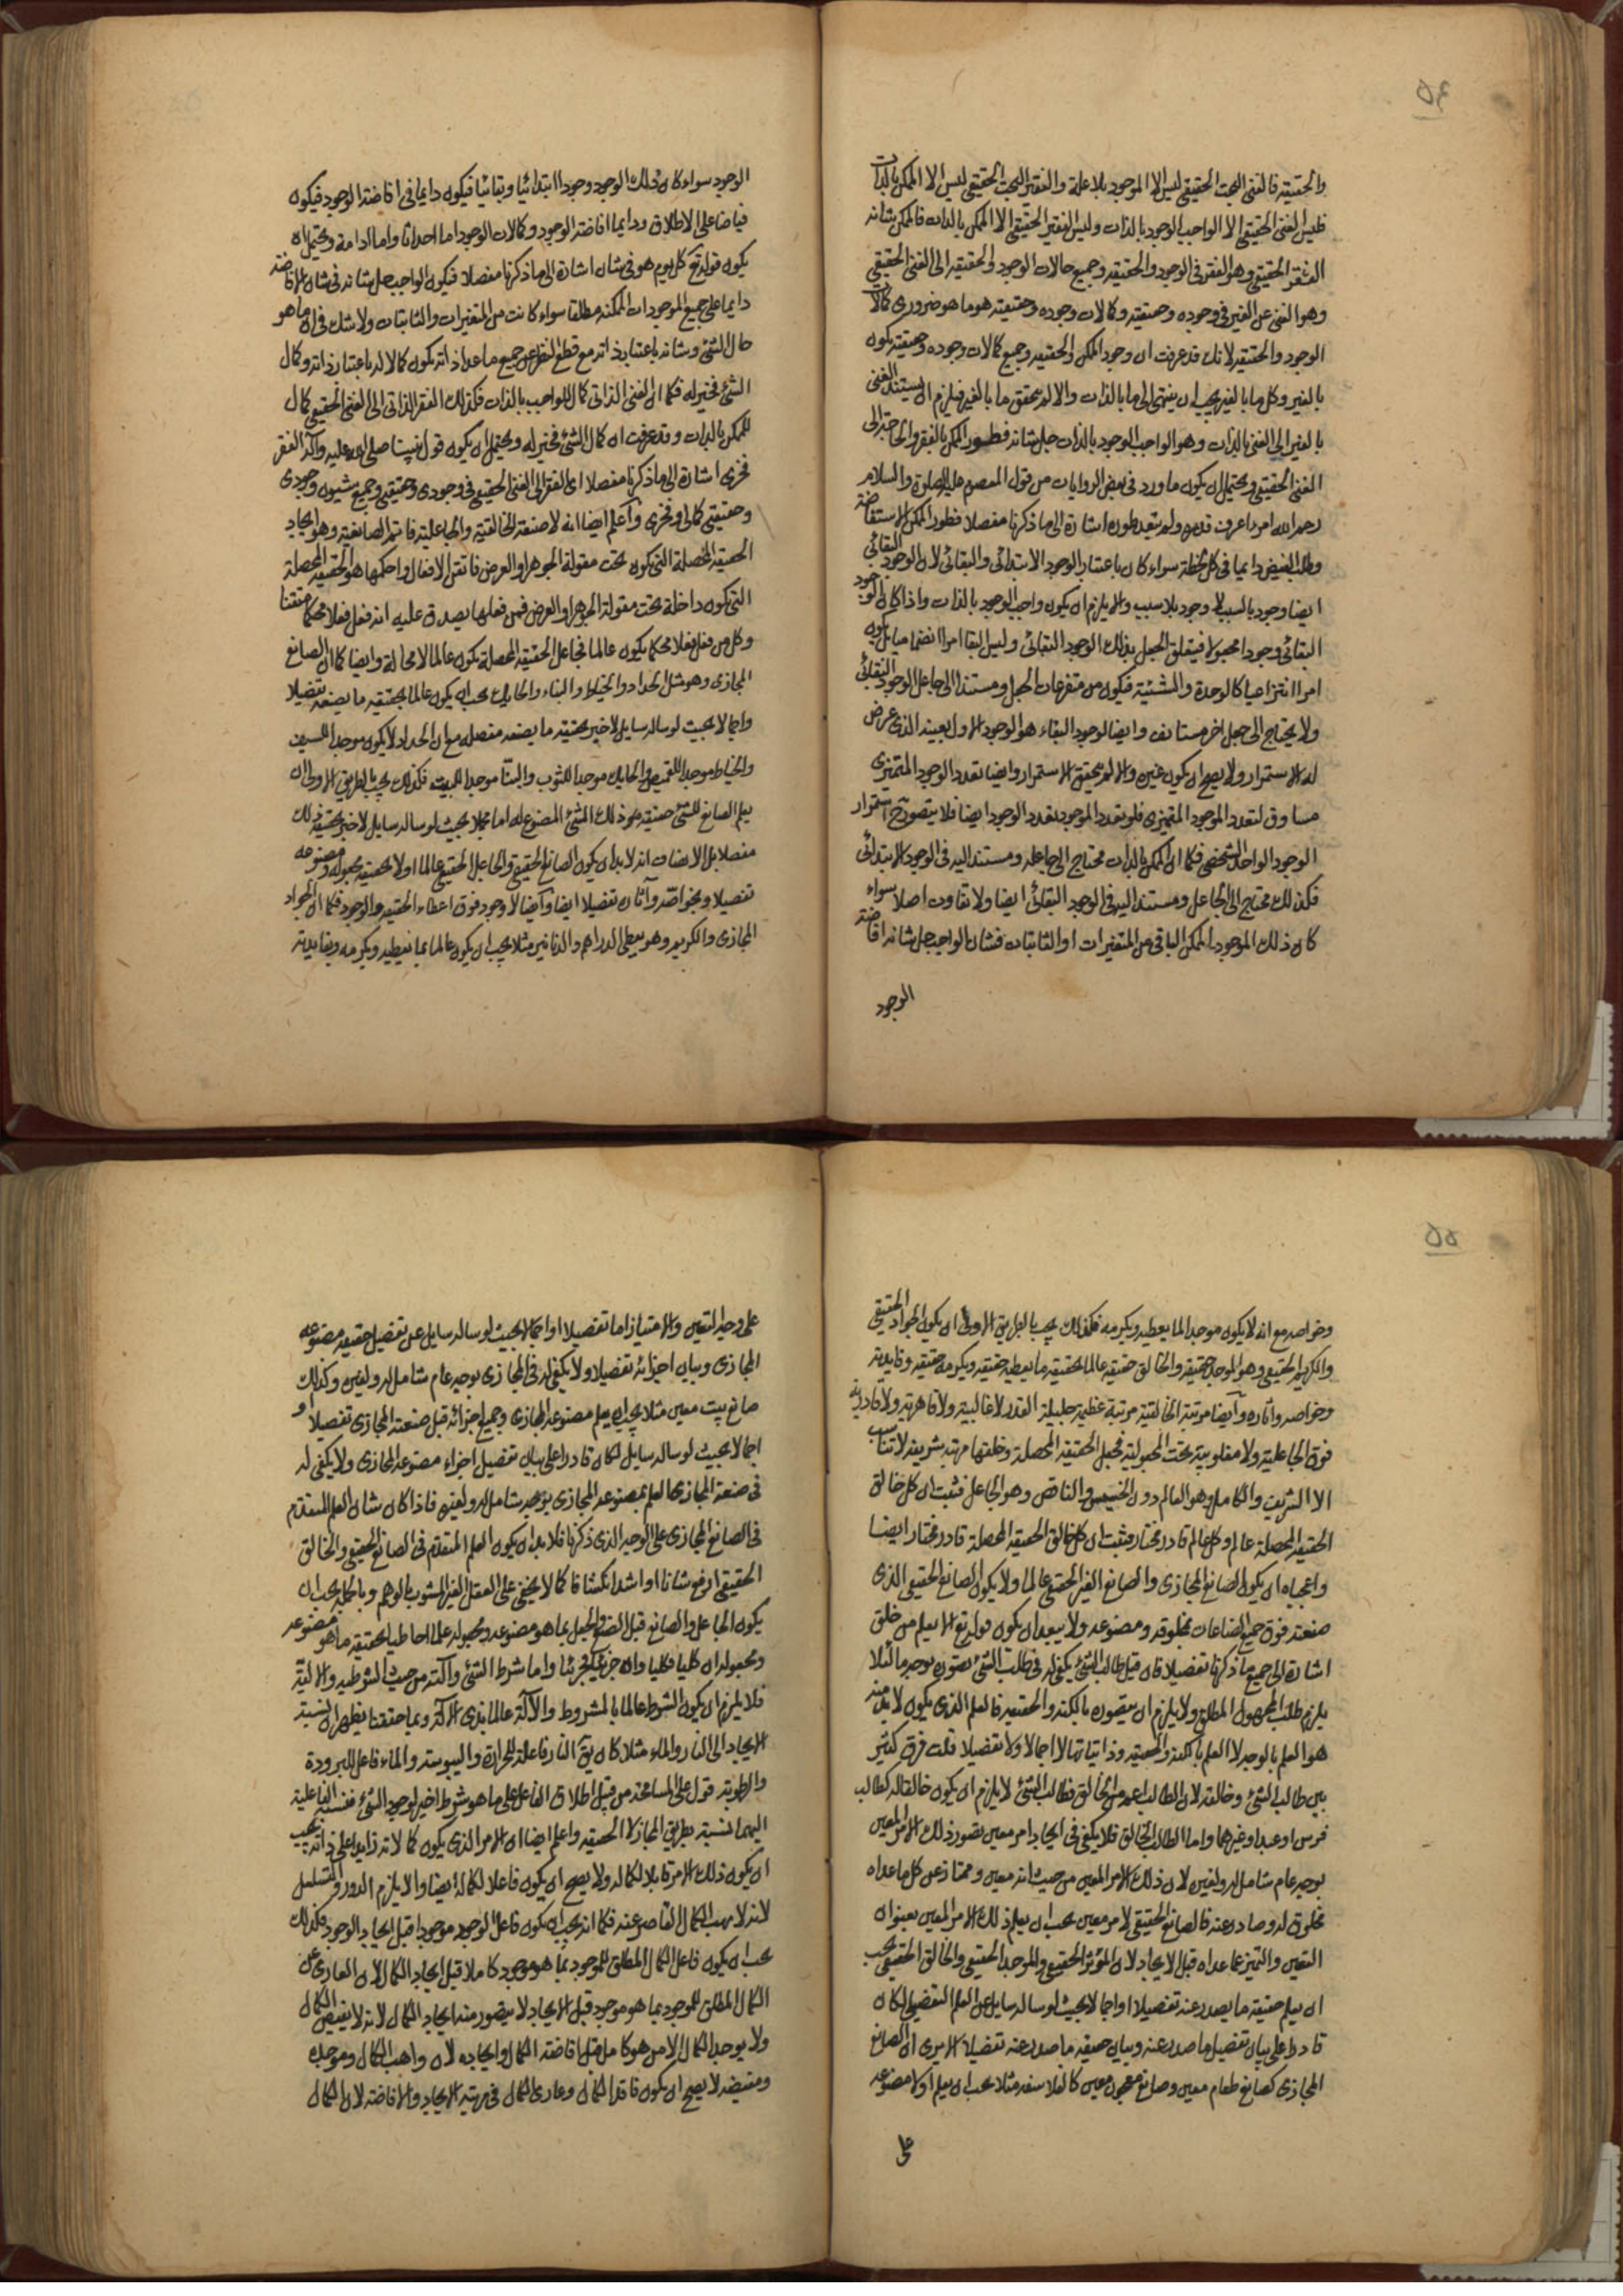 ٥٤
والحقيقة فالغنى البحت الحقيقي ليس الا الموجود بلا علة والفقير البحت الحقيقي ليس الا الممكن بالذات
فليس الغنى الحقيقي الا الواجب الوجود بالذات وليس الفقير الحقيقي الا الممكن بالذات فالممكن شانه
الفقر الحقيقي وهو الفقر في الوجود والحقيقة وجميع حالات الوجود والحقيقة الى الغنى الحقيقي
وهو الغنى عن الغير في وجوده وحقيقته وكمالات وجوده وحقيقته هو ما هو ضروري كمالات
الوجود والحقيقة لانك قد عرفت ان وجود الممكن والحقيقة وجميع كمالات وجوده وحقيقته يكون
بالغير وكل ما بالغير يجب ان ينتهى الى ما بالذات والا لم يتحقق ما بالغير فيلزم ان يستند الغنى
بالغير الى الغنى بالذات وهو الواجب الوجود بالذات جل شانه فطور الممكن بالفقر والحاجة الى
الغنى الحقيقي ويحتمل ان يكون ما ورد في بعض الروايات من قول المعصوم عليه الصلوة والسلام
رحم الله امرءا عرف قدره ولم يتعد طوره اشارة الى ما ذكرنا مفصلا فطور الممكن الاستفاضة
وطلب الفيض دايما في كل لحظة سواء كان باعتبار الوجود الابتدائي والبقائي لان الوجود البقائي
ايضا وجود بالسبب لا وجود بلا سبب والا يلزم ان يكون واجب الوجود بالذات واذا كان الوجود
البقائي وجودا مجعولا فيتعلق الجعل بذلك الوجود البقائي وليس البقا امرا انضماميا بل يكون
امرا انتزاعيا كالوحدة والشيئية فيكون من متفرعات الجعل ومستندا الى جاعل الوجود البقائي
ولا يحتاج الى جعل اخر مستانف وايضا لوجود البقاء هو الوجود الاول بعينه الذي عرض
له الاستمرار ولا يصح ان يكون غيره والا لم يتحقق الاستمرار وايضا تعدد الوجود المتميزى
مساوق لتعدد الموجود المتميزى فلو تعدد الموجود تعدد الوجود ايضا فلا يتصور ح استمرار
الوجود الواحد الشخصي فكما ان الممكن بالذات محتاج الى جاعله ومستند اليه في الوجود الابتدائي
فكذلك محتاج الى الجاعل ومستند اليه في الوجود البقائي ايضا ولا تفاوت اصلا سواء
كان ذلك الموجود الممكن الباقي من المتغيرات او الثابتات فشان الواجب جل شانه افاضة
الوجود
الوجود سواء كان ذلك الوجود وجودا ابتدائيا وبقائيا فيكون دايما في افاضة الوجود فيكون
فياضا على الاطلاق ودايما افاضة الوجود وكمالات الوجود اما احداثا واما ادامة ويحتمل ان
يكون قوله تع كل يوم هو في شان اشارة الى ما ذكرنا مفصلا فيكون الواجب جل شانه في شان الافاضة
دايما على جميع الموجودات الممكنة مطلقا سواء كانت من المتغيرات والثابتات ولا شك في ان ما هو
حال الشئ وشانه باعتبار ذاته مع قطع النظر عن جميع ما عدا ذاته يكون كمالا له باعتبار ذاته وكمال
الشئ فخير له فكما ان الغنى الذاتي كمال للواجب بالذات فكذلك الفقر الذاتي الى الغنى الحقيقي كمال
للممكن بالذات وقد عرفت ان كمال الشئ فخير له ويحتمل ان يكون قول نبينا صلى الله عليه وآله الفقر
فخرى اشارة الى ما ذكرنا مفصلا اى الفقر الى الغنى الحقيقي في وجودى وحقيقتى وجميع شيون وجودى
وحقيقتى كمالى وفخرى وأعلم ايضا انه لا صنعة الخالقية والجاعلية فانتم الصانعية وهو ايجاد
الحقيقة المحصلة التي يكون تحت مقولة الجوهر او العرض فاتقن الافعال واحكمها هو الحقيقة المحصلة
التي يكون داخلة تحت مقولة الجوهر او العرض فمن فعلها يصدق عليه انه فعل فعلا محكما متقنا
وكل من فعل فعلا محكما يكون عالما فجاعل الحقيقة المحصلة يكون عالما لا محالة وايضا كما ان الصانع
المجازى وهو مثل الحداد والخياط والبناء والحايك يجب ان يكون عالما بحقيقة ما يصنعه تفصيلا
واجمالا بحيث لو ساله سايل لاخبر بحقيقة ما يصنعه مفصله مع ان الحداد لا يكون موجد السيف
والخياط موجد القميص والحايك موجدا للثوب والبنا موجدا للبيت فكذلك يجب بالطريق الاولى ان
يعلم الصانع للشئ حقيقة هو ذلك الشئ المصنوع له اما مجملا بحيث لو ساله سايل لاخبر بحقيقة ذلك
مفصلا بل الانصاف انه لا بد ان يكون الصانع الحقيقي والجاعل الحقيقي عالما اولا بحقيقة مجعوله ومصنوعه
تفصيلا وبخواصه وآثاره تفصيلا ايضا وأيضا لا وجود فوق اعطاء الحقيقة والوجود فكما ان الجواد
المجازى والكريم وهو يعطى الدراهم والدنانير مثلا يجب ان يكون عالما بما يعطيه ويكرمه وبفايدته
٥٥
وخواصه مع انه لا يكون موجدا لما يعطيه ويكرمه فكذلك يجب بالطريق الاولى ان يكون الجواد الحقيقي
والكريم الحقيقي وهو الموجد حقيقة والخالق حقيقة عالما بحقيقة ما يعطيه حقيقة ويكرمه حقيقة وفايدته
وخواصه وآثاره وأيضا مرتبة الخالقية مرتبة عظيمة جليلة القدر لا غالبية ولا قاهرية ولا قادرية
فوق الجاعلية ولا مغلوبية تحت المجعولية فجعل الحقيقة المحصلة وخلقها مرتبة شريفة لا تناسب
الا الشريف والكامل وهو العالم دون الخسيس والناقص وهو الجاعل فثبت ان كل خالق
الحقيقة المحصلة عالم وكل عالم قادر مختار فثبت ان كل خالق الحقيقة المحصلة قادر مختار ايضا
واعجباه ان يكون الصانع المجازى والصانع الغير الحقيقي عالما ولا يكون الصانع الحقيقي الذى
صنعته فوق جميع الصناعات بمخلوقه ومصنوعه ولا يبعد ان يكون قوله تع الا يعلم من خلق
اشارة الى جميع ما ذكرنا تفصيلا فان قيل طالب الشئ يكفى له في طلب الشئ تصوره بوجه ما لئلا
يلزم طلب المجهول المطلق ولا يلزم ان يتصوره بالكنه والحقيقة فالعلم الذى يكون لا بد منه
هو العلم بالوجه لا العلم بالكنه والحقيقة وذاتياتها لا اجمالا ولا تفصيلا قلت فرق كثير
بين طالب الشئ وخالقه لان الطالب اعم من الخالق فطالب الشئ لا يلزم ان يكون خالقا له كطالب
فرس او عبد او غيرهما واما الطالب الخالق فلا يكفى في ايجاد امر معين تصور ذلك الامر المعين
بوجه عام شامل له ولغيره لان ذلك الامر المعين من حيث انه معين وممتاز عن كل ما عداه
مخلوق له وصادر عنه فالصانع الحقيقي لامر معين يجب ان يعلم ذلك الامر المعين بعنوان
التعين والتميز عما عداه قبل الايجاد لان المؤثر الحقيقي والموجد الحقيقي والخالق الحقيقي يجب
ان يعلم حقيقة ما يصدر عنه تفصيلا او اجمالا بحيث لو ساله سايل عن العلم التفصيلى لكان
قادرا على بيان تفصيل ما صدر عنه وبيان حقيقة ما صدر عنه تفصيلا الا يرى ان الصانع
المجازى كصانع طعام معين وصانع معجون معين كالفلاسفة مثلا يجب ان يعلم اولا مصنوعه
على
على وجه التعين والامتياز اما تفصيلا او اجمالا بحيث لو ساله سايل عن تفصيل حقيقة مصنوعه
المجازى وبيان اجزائه تفصيلا ولا يكفى له في المجازى بوجه عام شامل له ولغيره وكذلك
صانع بيت معين مثلا يجب ان يعلم مصنوعه المجازى وجميع اجزائه قبل صنعة المجازى تفصيلا و
اجمالا بحيث لو ساله سايل لكان قادرا على بيان تفصيل اجزاء مصنوعه المجازى ولا يكفى له
في صنعة المجازى العلم بمصنوعه المجازى بوجه شامل له ولغيره فاذا كان شان العلم المتقدم
في الصانع المجازى على الوجه الذى ذكرنا فلا بد ان يكون العلم المتقدم في الصانع الحقيقي والخالق
الحقيقي ارفع شانا او اشد انكشافا كما لا يخفى على العقل الغير المشوب بالوهم وبالجملة يجب ان
يكون الجاعل والصانع قبل الصنع والجعل بما هو مصنوعه ومجعوله علما احاطيا بحقيقة ما هو مصنوعه
ومجعوله ان كليا فكليا وان جزئيا فجزئيا واما شرط الشئ وآلته من حيث الشرطية والالية
فلا يلزم ان يكون الشرط عالما بالمشروط والآلة عالما بذى الالة وبما حققنا يظهر ان نسبة
الايجاد الى النار والماء مثلا كان يق النار فاعلة للحرارة واليبوسة والماء فاعل للبرودة
والرطوبة قول على المسامحة من قبيل اطلاق الفاعل على ما هو شرط اخير لوجود الشئ فنسبة الفاعلية
اليهما نسبة بطريق المجاز لا الحقيقة واعلم ايضا ان الامر الذى يكون كمالاته زايدا على ذاته يجب
ان يكون ذلك الامر قابلا لكماله ولا يصح ان يكون فاعلا لكماله أيضا والا يلزم الدور او التسلسل
لانه لا يهب الكمال القاصر عنه فكما انه يجب ان يكون فاعل الوجود موجودا قبل ايجاد الوجود فكذلك
يجب ان يكون فاعل الكمال المطلق للموجود بما هو موجود كاملا قبل ايجاد الكمال لان العارى عن
الكمال المطلق للموجود بما هو موجود قبل الايجاد لا يتصور منه ايجاد الكمال لانه لا يفيض الكمال
ولا يوجد الكمال الا من هو كامل قبل افاضة الكمال وايجاده لان واهب الكمال وموجده
ومفيضه لا يصح ان يكون فاقد الكمال وعارى الكمال في مرتبة الايجاد والافاضة لان الكمال